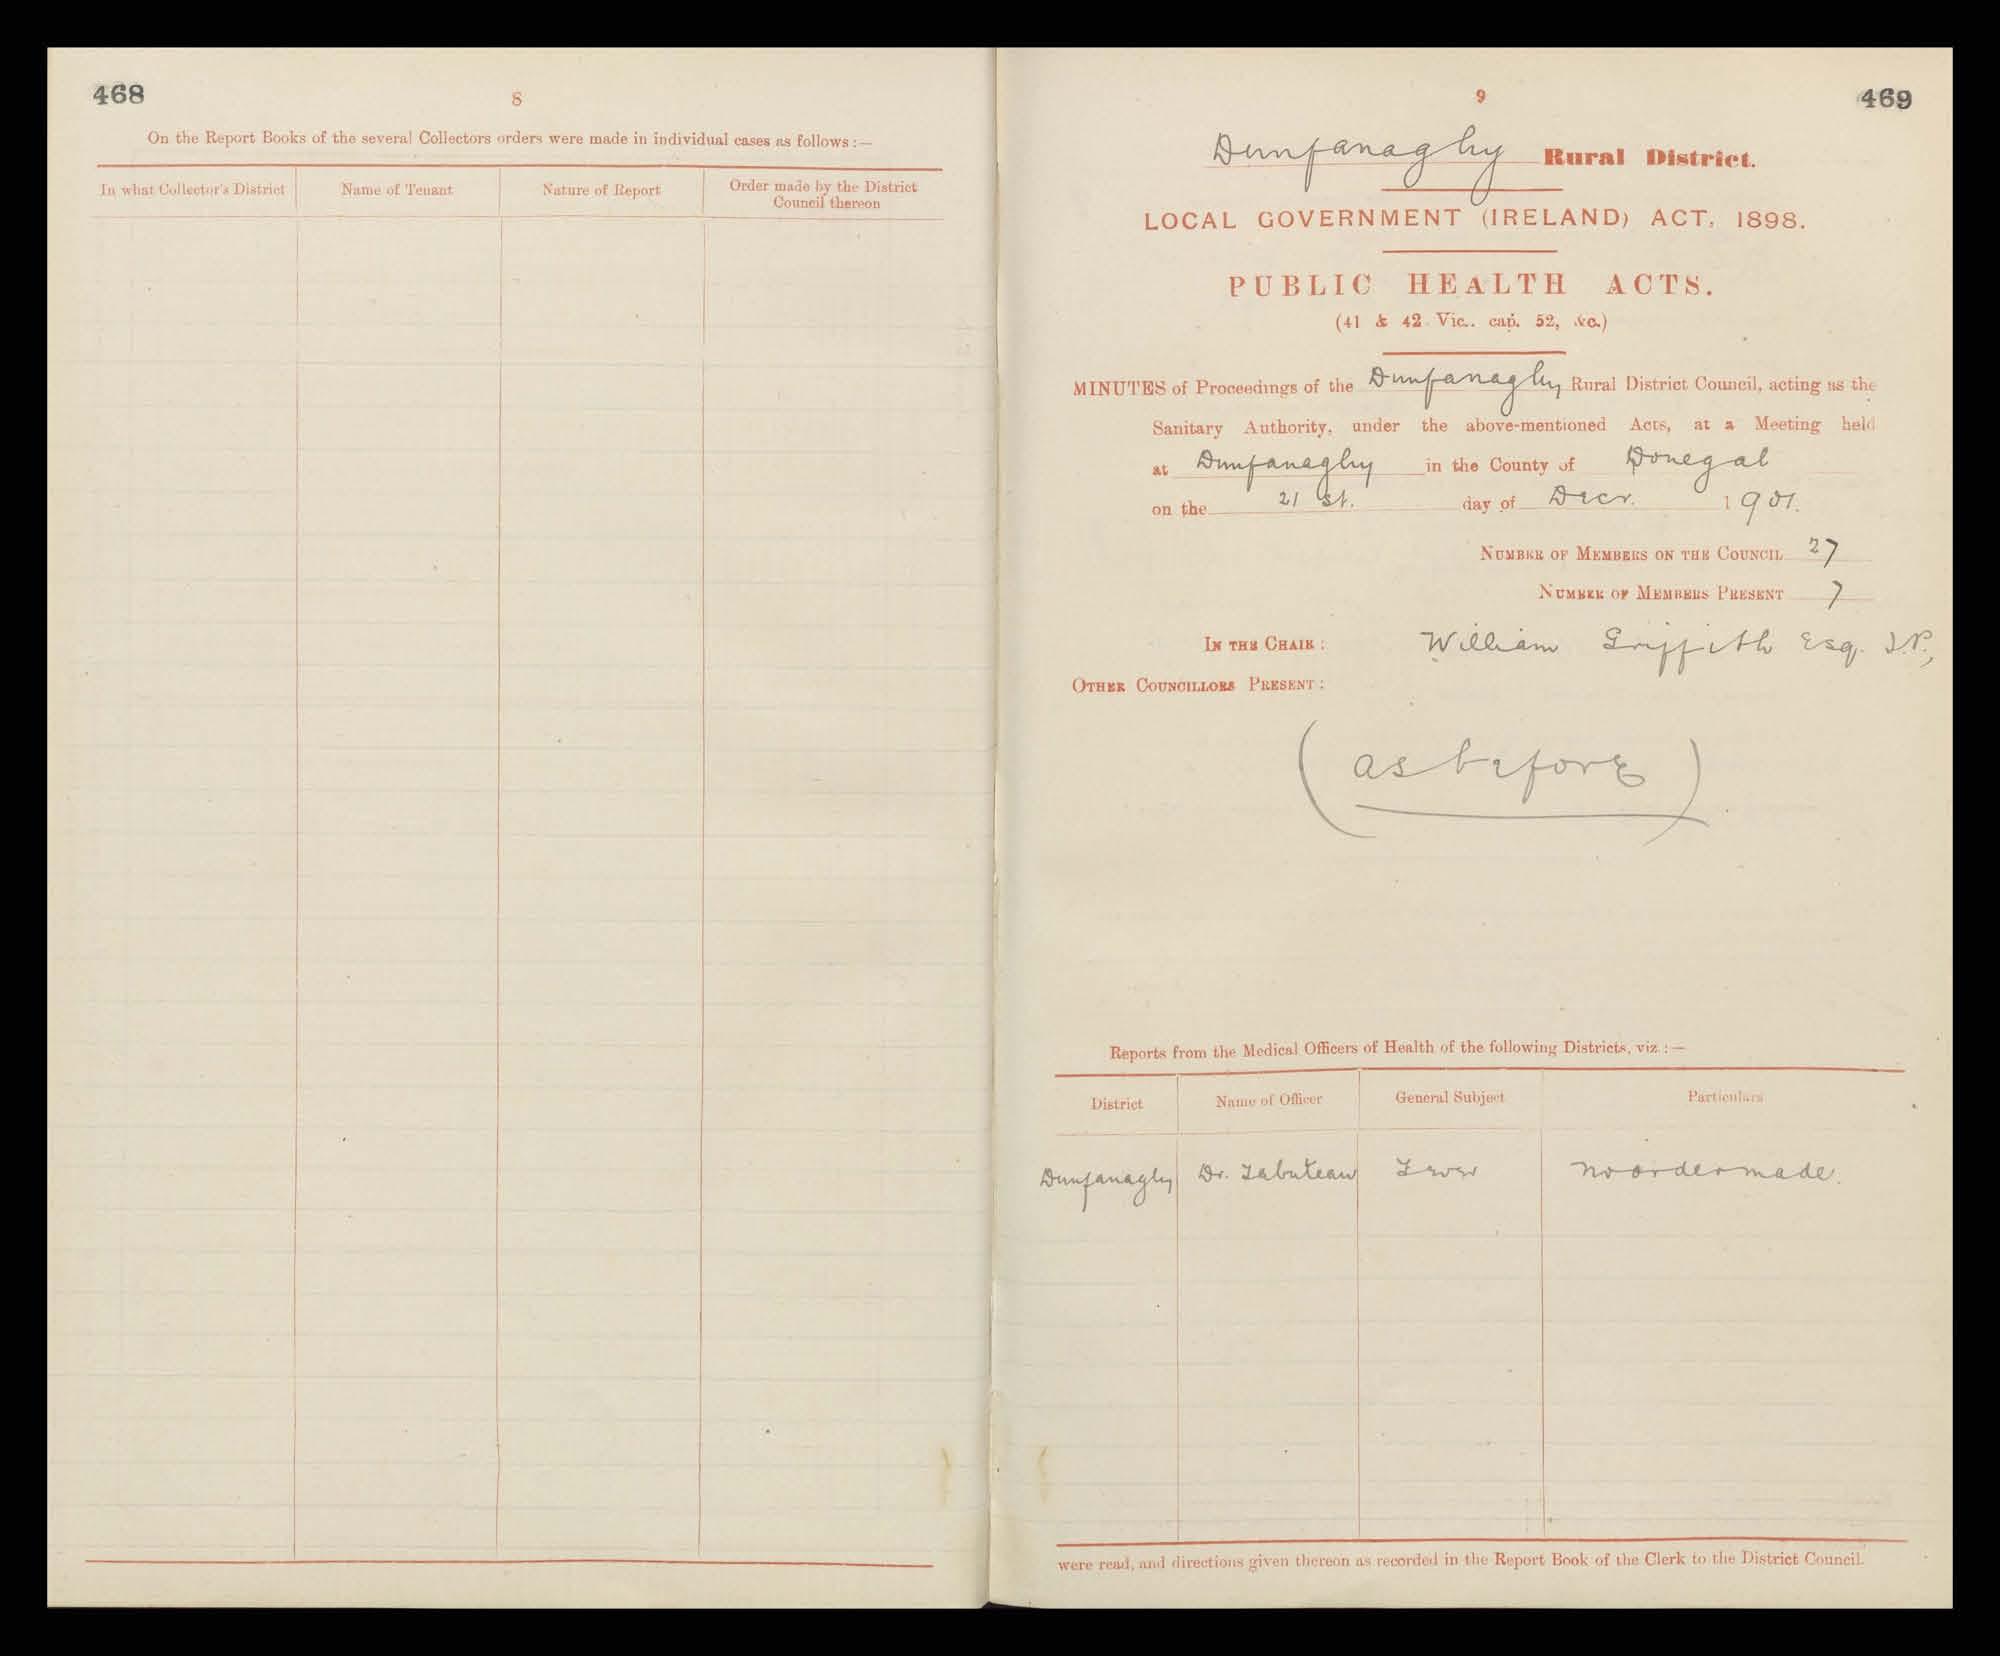 468
8
On the Report Books of the several Collectors orders were made in individual cases as follows :—
In what Collector's District
Name of Tenant
Nature of Report
Order made by the District
Council thereon
9
469
Dunfanaghy Rural District.
LOCAL GOVERNMENT (IRELAND) ACT, 1898.
PUBLIC HEALTH ACTS.
(41 & 42 Vic.. cap. 52, &c.)
MINUTES of Proceedings of the Dunfanaghy Rural District Council, acting as the
Sanitary Authority, under the above-mentioned Acts, at a Meeting held
at Dunfanaghy in the County of Donegal
on the 21 st. day of Decr. 1901.
NUMBER OF MEMBERS ON THE COUNCIL 27
NUMBER OF MEMBERS PRESENT 7
IN THE CHAIR : William Griffith Esq. J.P.,
OTHER COUNCILLORS PRESENT :
(as before)
Reports from the Medical Officers of Health of the following Districts, viz. :—
District Name of Officer General Subject Particulars
Dunfanaghy Dr. Labuteau Fever No order made.
were read, and directions given thereon as recorded in the Report Book of the Clerk to the District Council.